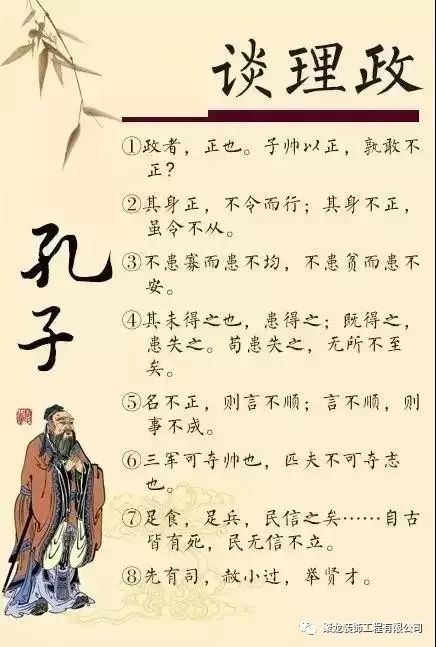 谈理政
孔子
①政者，正也。子帅以正，孰敢不
正？
②其身正，不令而行；其身不正，
虽令不从。
③不患寡而患不均，不患贫而患不
安。
④其未得之也，患得之；既得之，
患失之。苟患失之，无所不至
矣。
⑤名不正，则言不顺；言不顺，则
事不成。
⑥三军可夺帅也，匹夫不可夺志
也。
⑦足食，足兵，民信之矣……自古
皆有死，民无信不立。
⑧先有司，赦小过，举贤才。
聚龙装饰工程有限公司